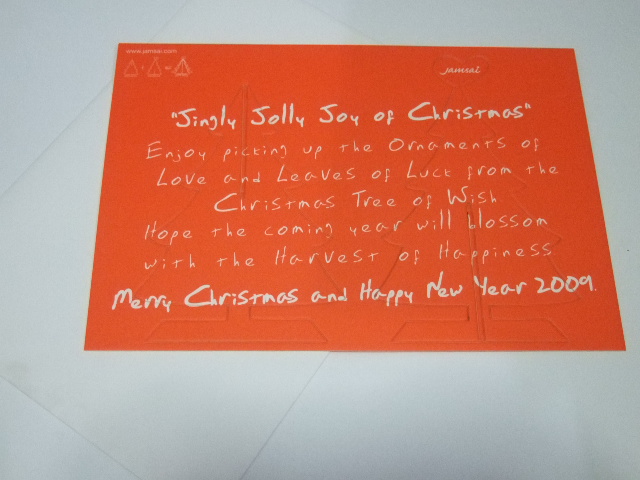 www.jamsai.com
jamsai
"Jingly Jolly Joy of Christmas"
Enjoy picking up the Ornaments of
Love and Leaves of Luck from the
Christmas Tree of Wish
Hope the coming year will blossom
with the Harvest of Happiness
Merry Christmas and Happy New Year 2009.